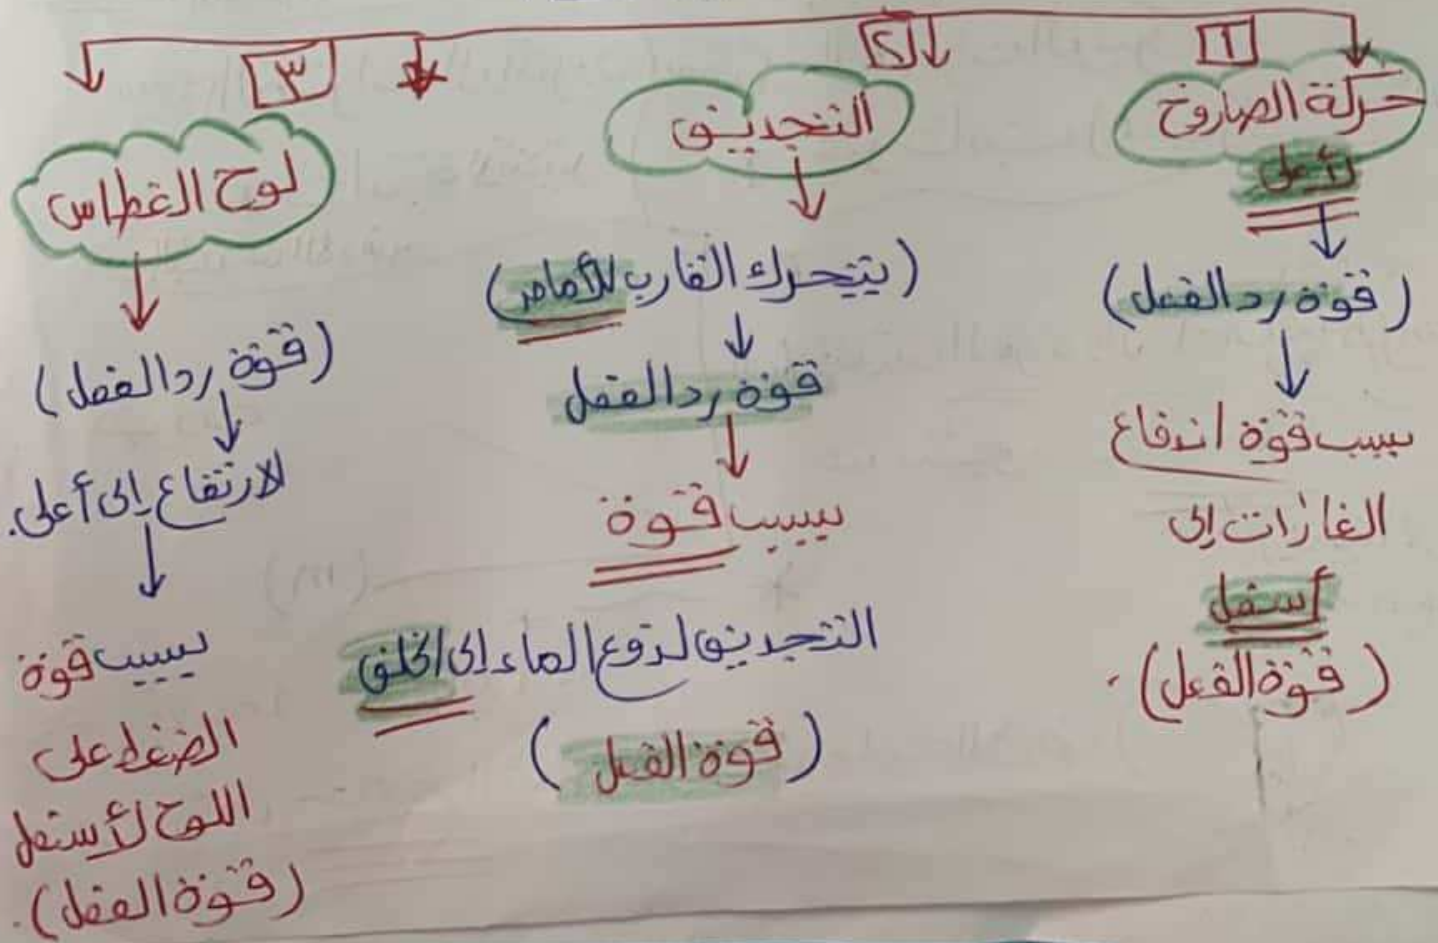 ١
حركة الصاروخ
لأعلى
(قوة رد الفعل)
بسبب قوة اندفاع
الغازات إلى
أسفل
(قوة الفعل).
٢
التجديف
(يتحرك القارب للأمام)
قوة رد الفعل
بسبب قوة
التجديف لدفع الماء إلى الخلف
(قوة الفعل)
٣
لوح الغطاس
(قوة رد الفعل)
للارتفاع إلى أعلى.
بسبب قوة
الضغط على
اللوح لأسفل
(قوة الفعل).